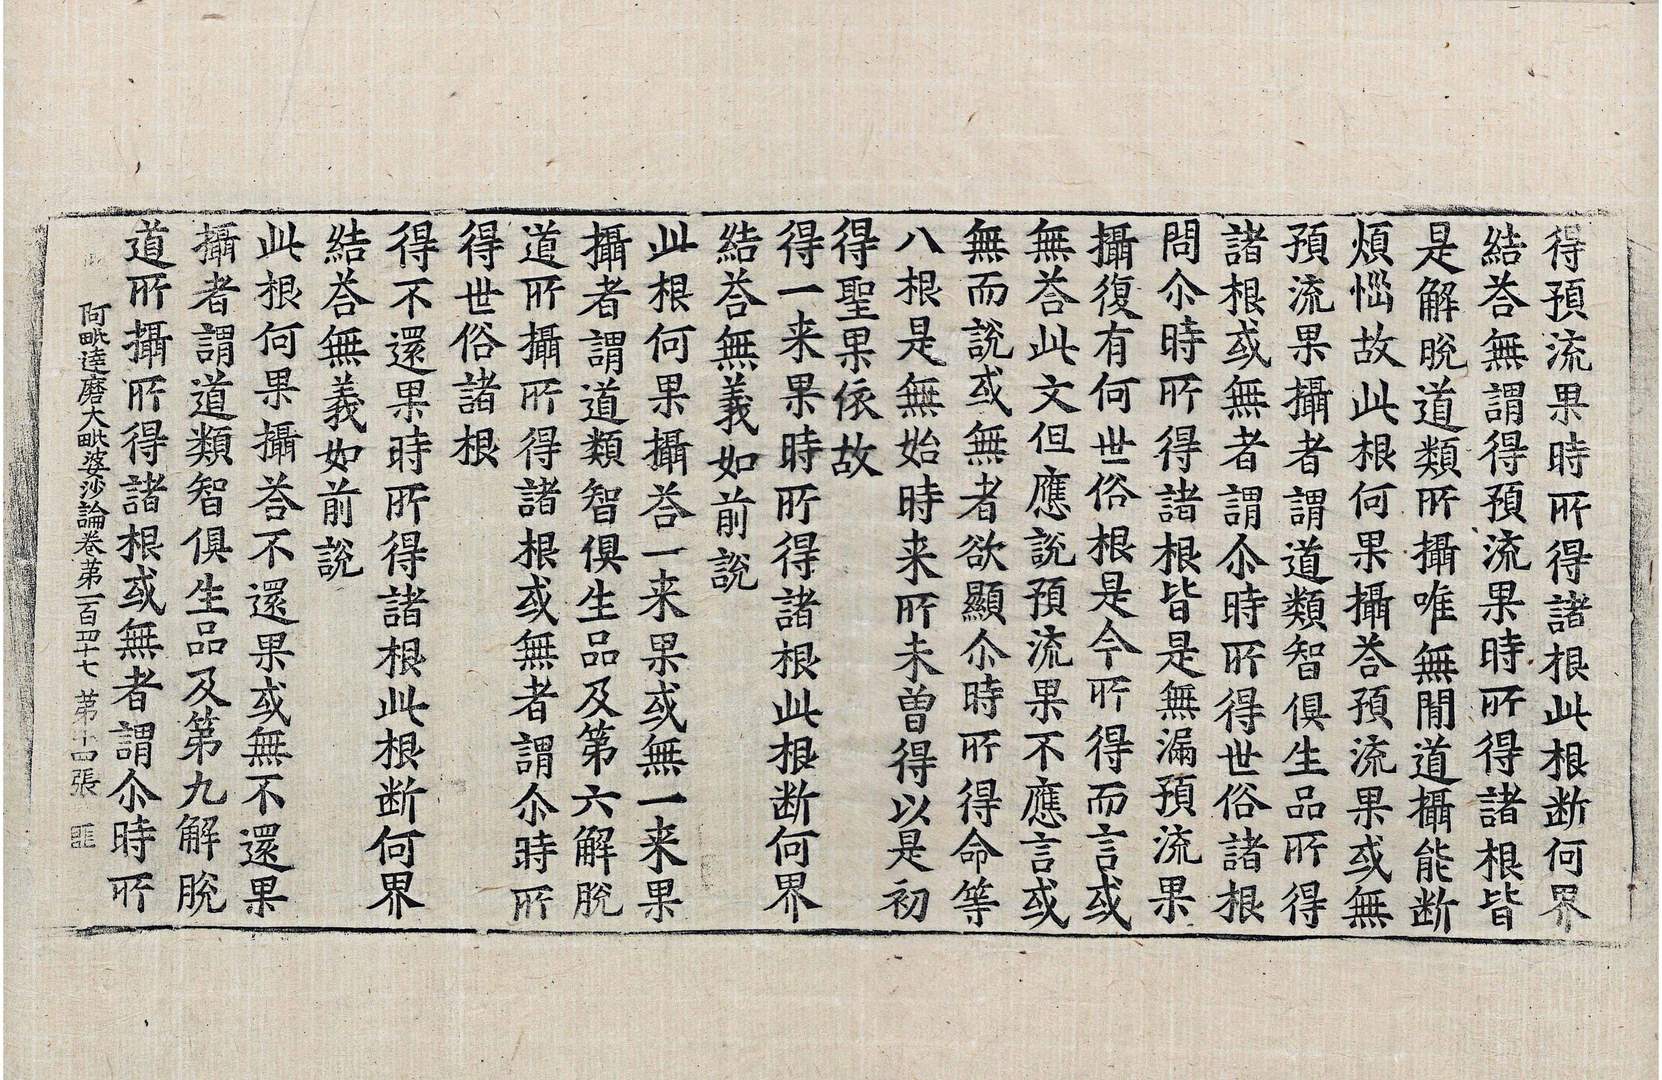 得預流果時所得諸根此根断何界
結荅無謂得預流果時所得諸根皆
是解脫道類所攝唯無閒道攝能断
煩惱故此根何果攝荅預流果或無
預流果攝者謂道類智俱生品所得
諸根或無者謂尒時所得世俗諸根
問尒時所得諸根皆是無漏預流果
攝復有何世俗根是今所得而言或
無荅此文但應說預流果不應言或
無而說或無者欲顯尒時所得命等
八根是無始時来所未曾得以是初
得聖果依故
得一来果時所得諸根此根断何界
結荅無義如前說
此根何果攝荅一来果或無一来果
攝者謂道類智俱生品及第六解脫
道所攝所得諸根或無者謂尒時所
得世俗諸根
得不還果時所得諸根此根断何界
結荅無義如前說
此根何果攝荅不還果或無不還果
攝者謂道類智俱生品及第九解脫
道所攝所得諸根或無者謂尒時所
阿毗達磨大毗婆沙論卷第一百四十七 第十四張 匪